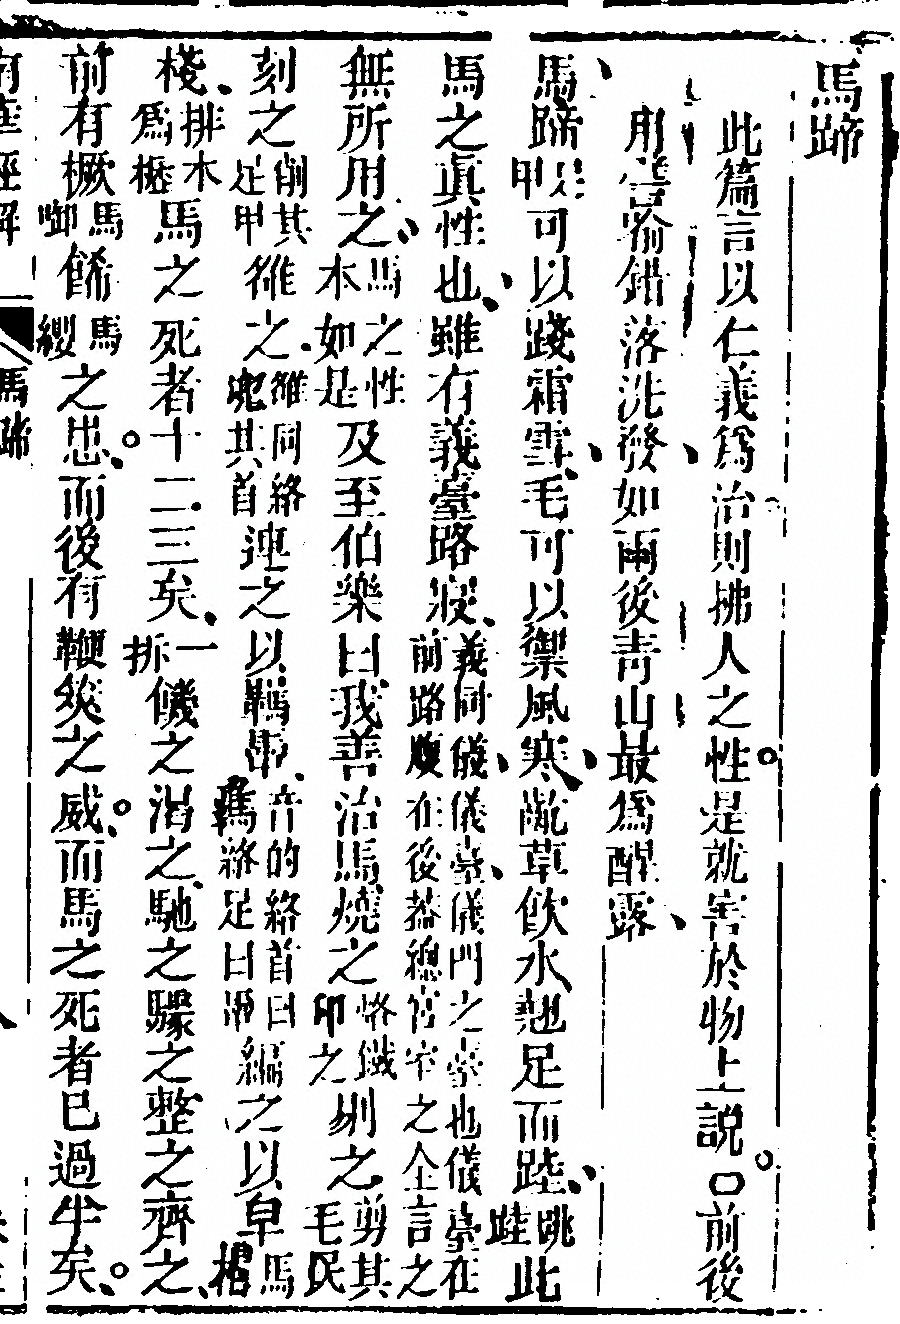 馬蹄
此篇言以仁義爲治則拂人之性是就害於物上說○前後
用譬喻錯落洗發如雨後青山最爲醒露
馬蹄足甲可以踐霜雪毛可以禦風寒齕草飲水翹足而陸跳陸此
馬之眞性也雖有義臺路寢義同儀儀臺儀門之臺也儀臺在前路寢在後葢總宮室之全言之
無所用之馬之性本如是及至伯樂曰我善治馬燒之烙鐵印之剔之剪其毛
刻之削其足甲雒之雒同絡兜其首連之以羈馽音的絡首曰羈絡足曰馽編之以皁馬櫪
棧排木爲棚馬之死者十二三矣一折饑之渴之馳之驟之整之齊之
前有橛馬啣飾馬纓之患而後有鞭筴之威而馬之死者已過半矣
馬蹄